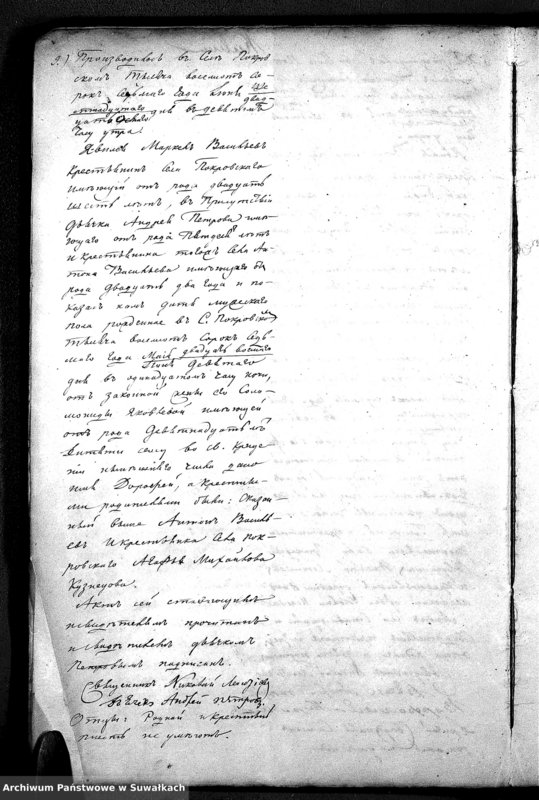 9.) Производилось въ Селѣ Покров
скомъ Тысяча восемсотъ Со-
рокъ Седьмаго Года Іюня
двад-
дня въ девятомъ
Часу утра.
Явился Маркелъ Васильевъ
Крестьянинъ Села Покровскаго
имѣющій отъ рода двадцать
шесть лѣтъ, въ Присутствіи
Дьячка Андрея Петрова имѣ-
ющаго отъ рода лѣтъ
и крестьянина тогожъ Села Ан-
тона Васильева имѣющаго отъ
рода двадцать два Года и по-
казалъ намъ дитя мужескаго
пола рожденное въ С. Покровскомъ
тысяча восемсотъ Сорокъ Седь-
маго Года Маія двадцать
Іюня Девятаго
дня въ одинадцатомъ Часу ночи,
отъ законной жены его Соло-
мониды Яковлевой имѣющей
отъ рода Девятнадцать лѣтъ
Дитяти сему во св. Креще-
ніи нынѣшняго числа дано
имя Дорофей, а крестны-
ми родителями были: Сказан-
ный выше Антонъ Василь-
евъ и крестьянка Села Пок-
ровскаго Агафья Михайлова
Кузнецова.
Актъ сей
и свидѣтелямъ прочитанъ
и свидѣтелемъ дьячкомъ
Петровымъ подписанъ.
Священникъ Николай
Дьячекъ Андрей Петровъ
Отцы: Родной и крестный
писать не умѣютъ.
Archiwum Państwowe w Suwałkach